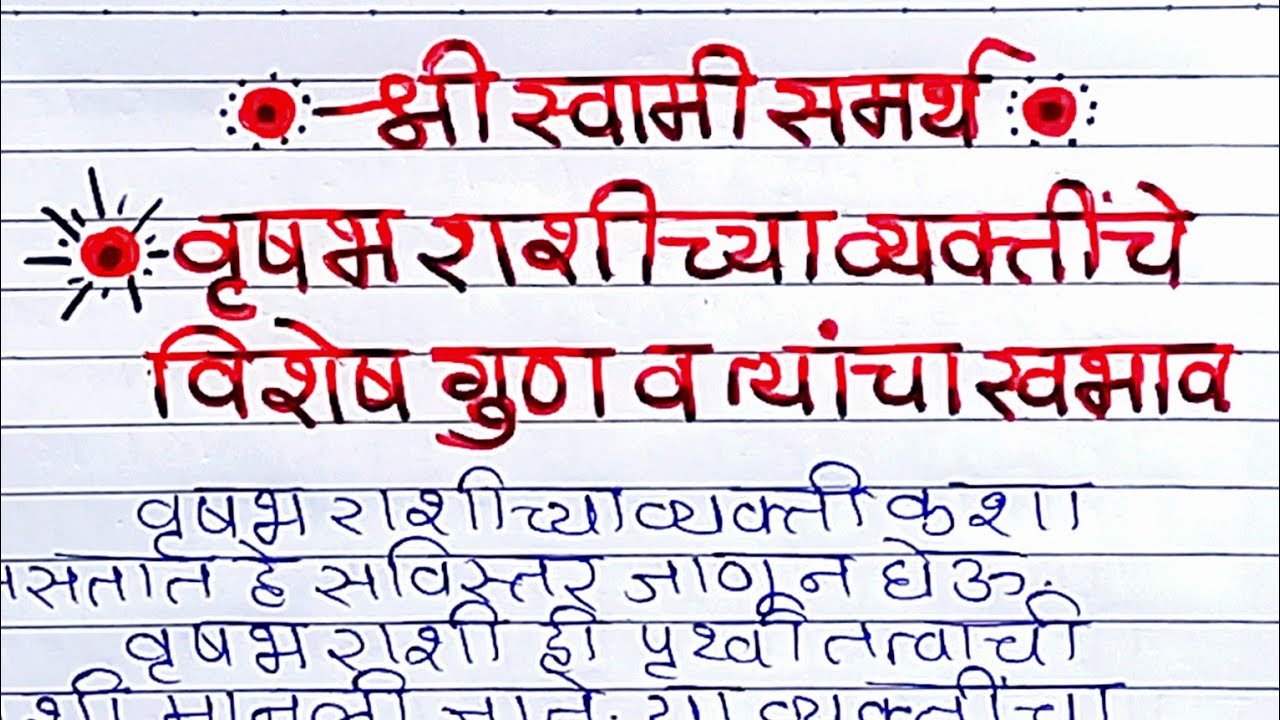 श्री स्वामी समर्थ
वृषभ राशीच्या व्यक्तींचे
विशेष गुण व त्यांचा स्वभाव
वृषभ राशीच्या व्यक्ती कशा
असतात हे सविस्तर जाणून घेऊ.
वृषभ राशी ही पृथ्वी तत्वाची
मानली जाते. या व्यक्तींचा